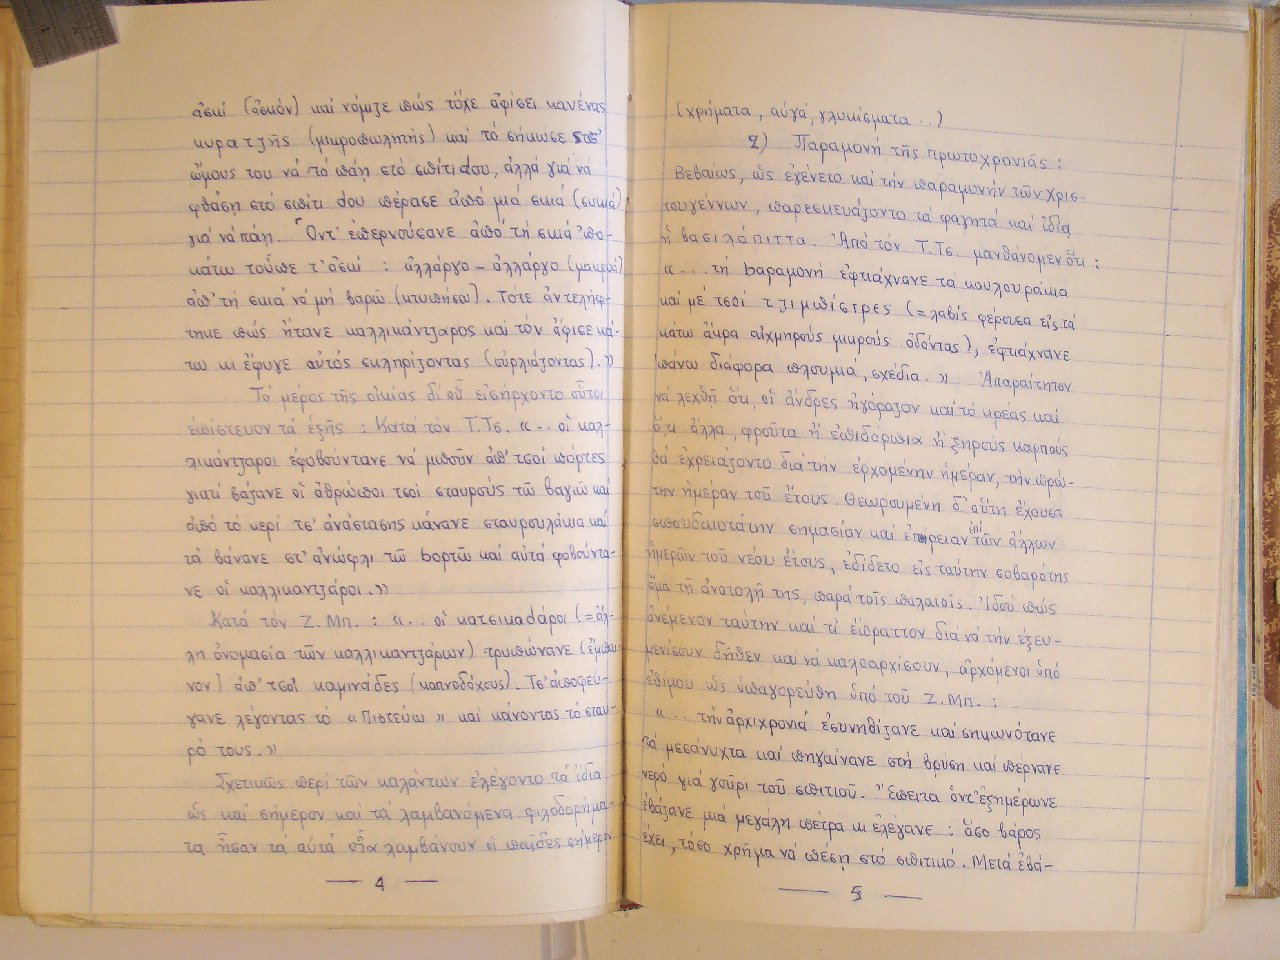 ἀσκί (ἀσκόν) καί νόμιζε πώς τὄχε ἀφίσει κανένας
κυρατζῆς (μικροπωλητής) καί τό σήκωσε στσ'
ὤμους του νά τό πάῃ στό σπίτι dου, ἀλλά γιά νά
φθάσῃ στό σπίτι dου πέρασε ἀπό μιά σκιά (συκιά)
γιά νά πάῃ. Ὄντ' ἐπερνούσανε ἀπό τή σκιά 'πο-
κάτω τοὖπε τ' ἀσκί : ἀλλάργο - ἀλλάργο (μακρυά)
ἀπ' τή σκιά νά μή βαρῶ (κτυπήσω). Τότε ἀντελήφ-
τηκε πώς ἤτανε καλλικάντζαρος καί τόν ἄφισε κά-
τω κι ἔφυγε αὐτός σκληρίζοντας (σύρλιάζοντας).»
Τό μέρος τῆς οἰκίας δι' οὗ εἰσήρχοντο οὗτοι
ἐπίστευον τά ἑξῆς : Κατά τόν Τ.Τσ. «.. οἱ καλ-
λικάντζαροι ἐφοβούντανε νά μποῦν ἀπ' τσοί πόρτες
γιατί βάζανε οἱ ἀθρώποι τσοί σταυρούς τῶ βαγιῶ καί
ἀπό τό κερί τσ' ἀνάστασης κάνανε σταυρουλάκια καί
τά βάνανε στ' ἀνώφλι τῶ bορτῶ καί αὐτά φοβούντα-
νε οἱ καλλικαντζάροι.»
Κατά τόν Ζ. Μπ. : «.. οἱ κατσικαdάροι (=ἄλ-
λη ὀνομασία τῶν καλλικαντζάρων) τρυπώνανε (ἔμπαι-
νον) ἀπ' τσοί καμινάδες (καπνοδόχους). Τσ' ἀποφεύ-
γανε λέγοντας τό «Πιστεύω» καί κάνοντας τό σταυ-
ρό τους.»
Σχετικῶς περί τῶν καλάντων ἐλέγοντο τά ἴδια
ὡς καί σήμερον καί τά λαμβανόμενα φιλοδορήμα-
τα ἦσαν τά αὐτά οἷα λαμβάνουν οἱ παῖδες σήμερον
— 4 —
(χρήματα, αὐγά, γλυκίσματα ..)
2) Παραμονή τῆς πρωτοχρονιᾶς :
Βεβαίως, ὡς ἐγένετο καί τήν παραμονήν τῶν Χρισ-
τουγέννων, παρεσκευάζοντο τά φαγητά καί ἰδία
ἡ βασιλόπιττα. Ἀπό τόν Τ.Τσ. μανθάνομεν ὅτι :
«... τή bαραμονή ἐφτιάχνανε τά κουλουράκια
καί μέ τσοί τζιμπίστρες (=λαβίς φέρουσα εἰς τά
κάτω ἄκρα αἰχμηρούς μικρούς ὀδόντας), ἐφτιάχνανε
'πάνω διάφορα πλουμιά, σχέδια.» Ἀπαραίτητον
νά λεχθῇ ὅτι, οἱ ἄνδρες ἠγόραζον καί τό κρέας καί
ὅ,τι ἄλλα, φροῦτα ἤ ἐπιδόρπια ἤ ξηρούς καρπούς
θά ἐχρειάζοντο διά τήν ἐρχομένην ἡμέραν, τήν πρώ-
την ἡμέραν τοῦ ἔτους. Θεωρουμένη δ' αὕτη ἔχουσα
σπουδαιοτάτην σημασίαν καί ἐπήρειαν ἐπί τῶν ἄλλων
ἡμερῶν τοῦ νέου ἔτους, ἐδίδετο εἰς ταύτην σοβαρότης
ἅμα τῇ ἀνατολῇ της, παρά τοῖς παλαιοῖς. Ἰδού πώς
ἀνέμενον ταύτην καί τί ἔπραττον διά νά τήν ἐξευ-
μενίσουν δῆθεν καί νά καλοαρχίσουν, ἀρχόμενοι ὑπό
ἐθίμου ὡς ὑπαγορεύθη ὑπό τοῦ Ζ. Μπ. :
«.. τήν ἀρχιχρονιά ἐσυνηθίζανε καί σηκωνότανε
τά μεσάνυχτα καί πηγαίνανε στή βρύση καί πέρνανε
νερό γιά γοῦρι τοῦ σπιτιοῦ. Ἔπειτα ὄντ' ἐξημέρωνε
ἐβάζανε μιά μεγάλη πέτρα κι ἐλέγανε : ὅσο βάρος
ἔχει, τόσο χρῆμα νά πέσῃ στό σπιτικό. Μετά ἐβά-
— 5 —